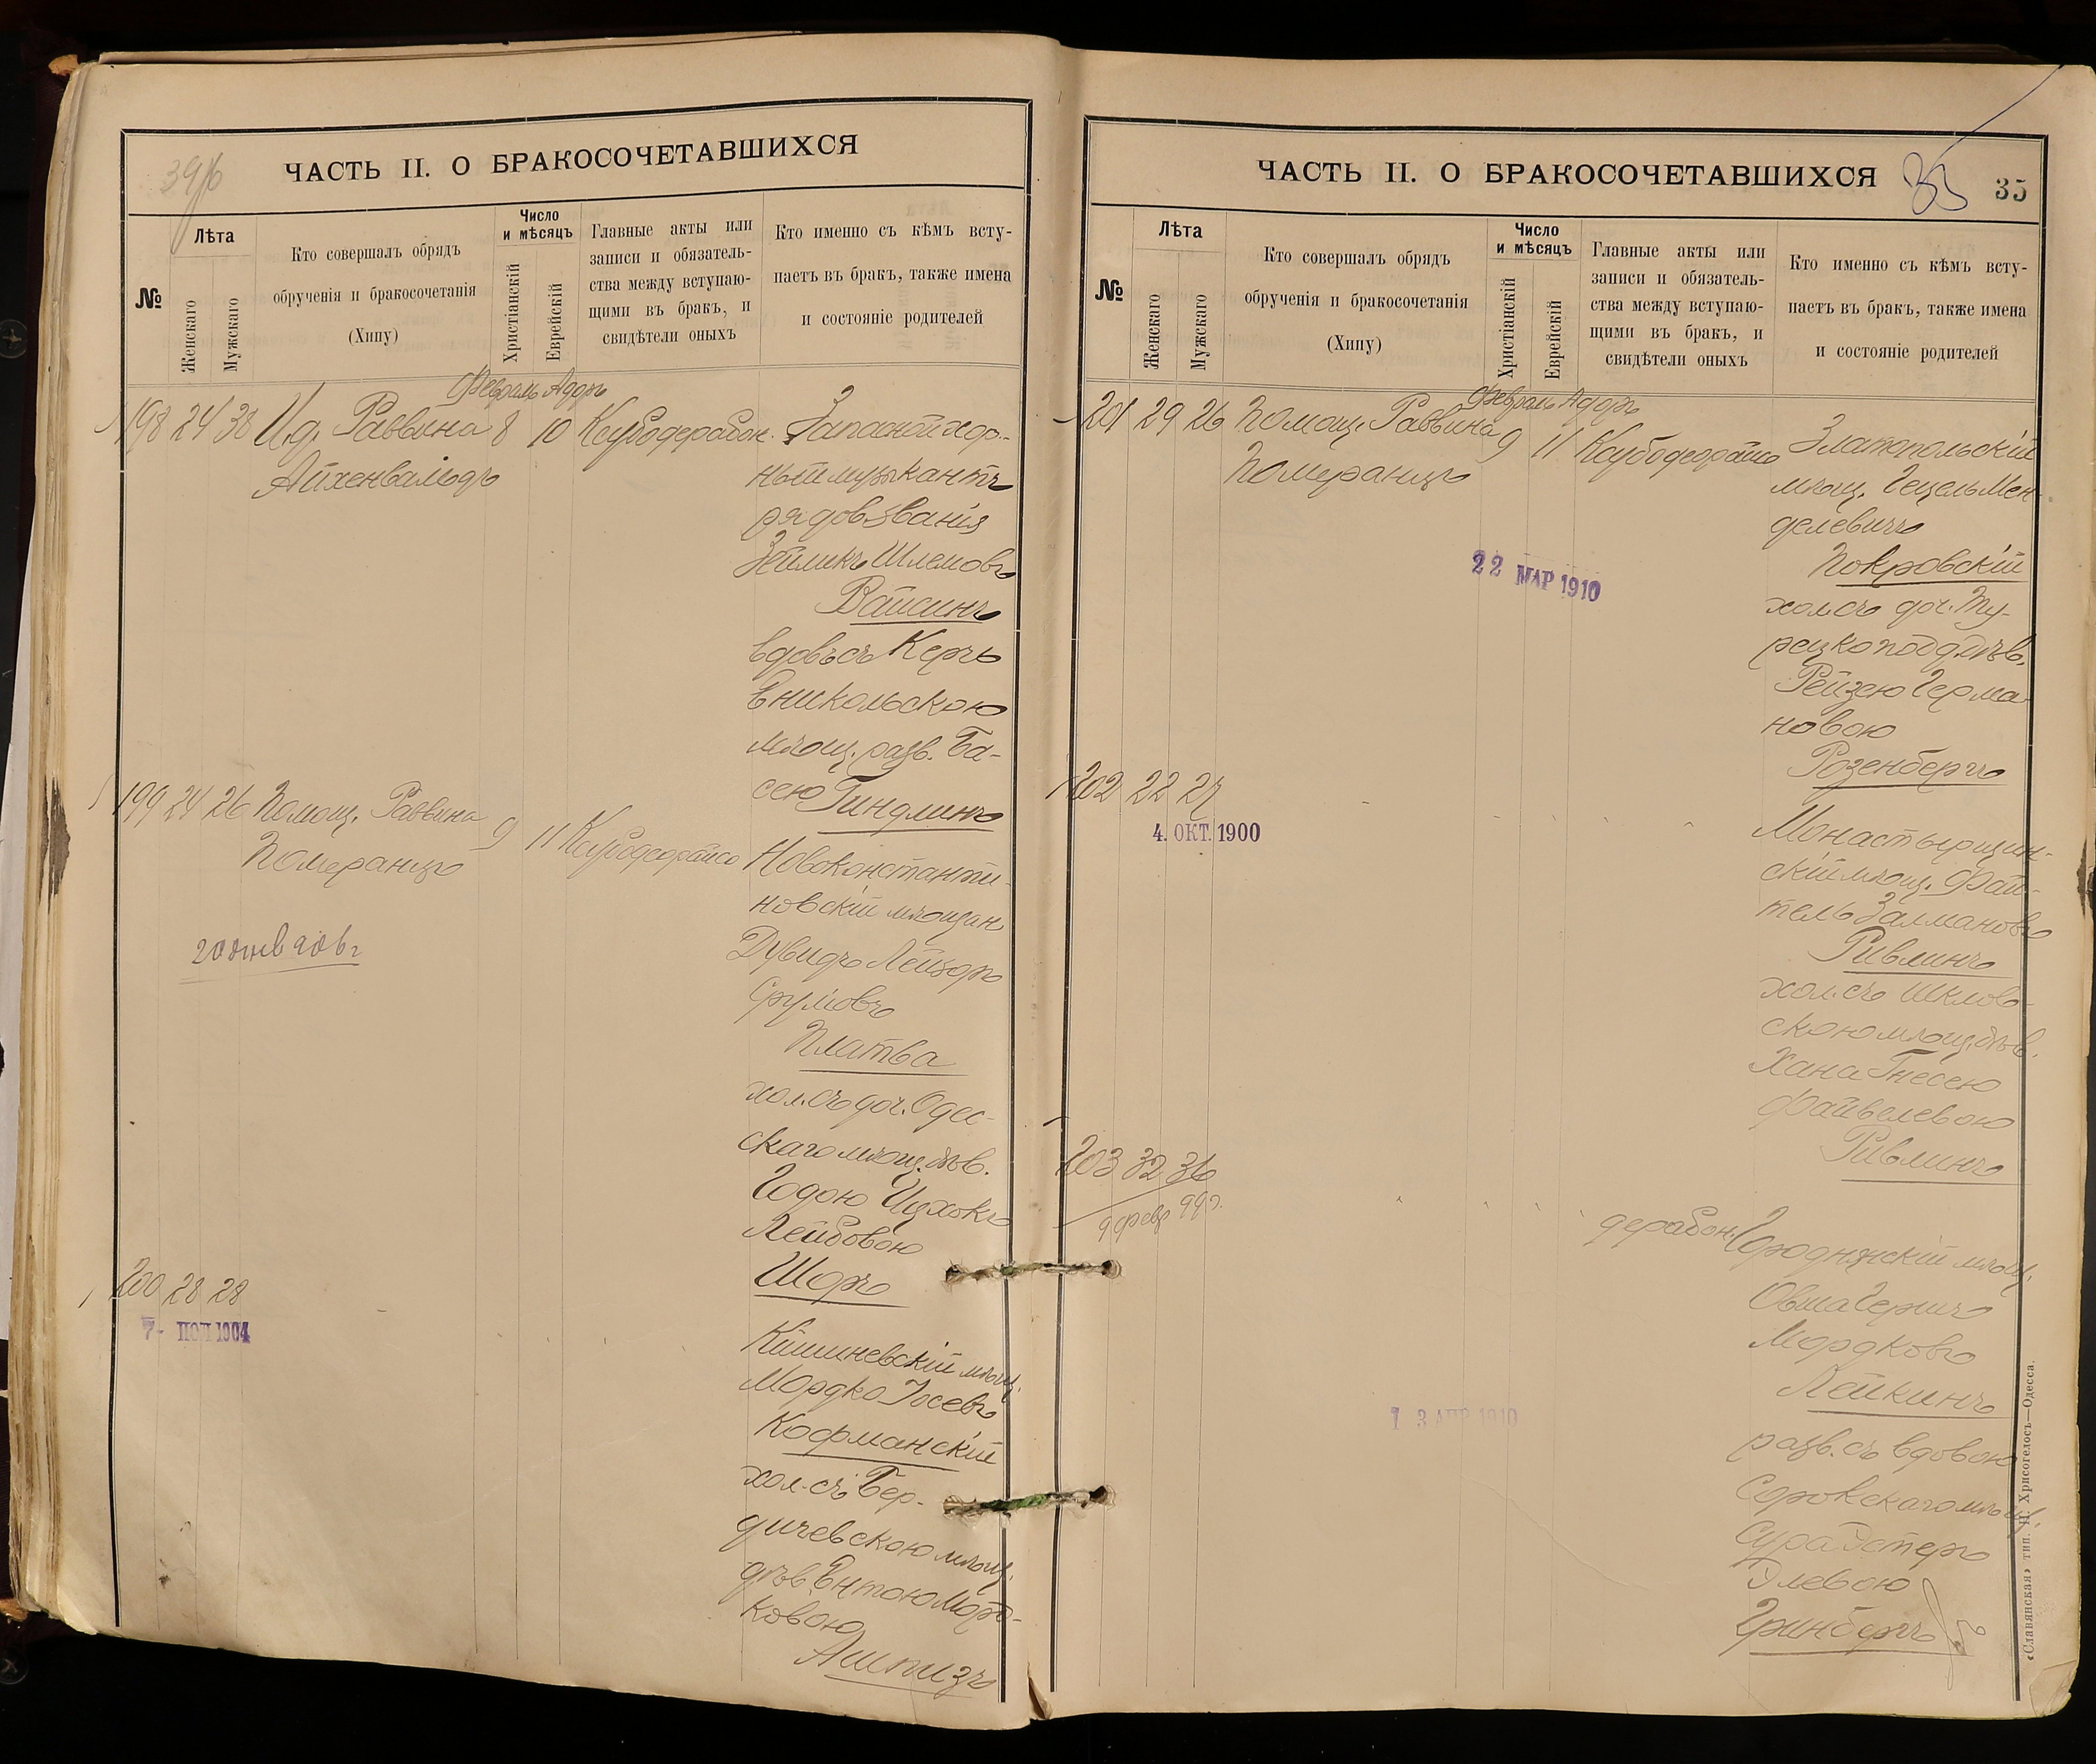 39/6
ЧАСТЬ II. О БРАКОСОЧЕТАВШИХСЯ
№
Лѣта
Женскаго
Мужскаго
Кто совершалъ обрядъ
обрученія и бракосочетанія
(Хипу)
Число
и мѣсяцъ
Христіанскій
Еврейскій
Главные акты или
записи и обязатель-
ства между вступаю-
щими въ бракъ, и
свидѣтели оныхъ
Кто именно съ кѣмъ всту-
паетъ въ бракъ, также имена
и состояніе родителей
Февраль Адаръ
198 24 38 И.д. Раввина 8 10 Запасной хор-
Айхенвальдъ
ный музыкантъ
рядов званія
Зейликъ Шлемовъ
Вайсинъ
вдовъ съ Керчь
Еникольскою
мѣщ. разв. Ба-
сею Гиндлинъ
199 24 26 Помощ. Раввина 9 11
Померанцъ
Новоконстанти-
новскій мѣщан
Дувидъ Лейзоръ
Срулiовъ
Платва
хол. съ доч. Одес-
скаго мѣщ. дѣв.
Годою Ицхокъ
Лейбовою
Шоръ
200 28 28
7- ІЮЛ 1904
Кишиневскій мѣщ.
Мордко Іосевъ
Кофманскій
хол. съ Бер-
дичевскою мѣщ.
дѣв. Ентою Морд-
ковою
Ашпизъ
ЧАСТЬ II. О БРАКОСОЧЕТАВШИХСЯ
35
35
№
Лѣта
Женскаго
Мужскаго
Кто совершалъ обрядъ
обрученія и бракосочетанія
(Хипу)
Число
и мѣсяцъ
Христіанскій
Еврейскій
Главные акты или
записи и обязатель-
ства между вступаю-
щими въ бракъ, и
свидѣтели оныхъ
Кто именно съ кѣмъ всту-
паетъ въ бракъ, также имена
и состояніе родителей
Февраль Адаръ
201 29 26 Помощ. Раввина 9 11 Златопольскій
Померанцъ
мѣщ. Гецель Мен-
делевичъ
Покровскій
22 МАР 1910
хол. съ доч. Ту-
рецкоподд. дѣв.
Рейзею Герма-
новою
Розенбергъ
202 22 27
4. ОКТ. 1900
Монастырщин-
скій мѣщ. Фай-
тель Залмановъ
Ривлинъ
хол. съ Шклов-
скою мѣщ. дѣв.
Хана Гнесею
Файвелевою
Ривлинъ
203 32 36
9 февр 99 г.
дерабон. Городнянскій мѣщ.
Овша Гершъ
Мордковъ
Лейкинъ
1 3 АПР 1910
разв. съ вдовою
Сорокскаго мѣщ.
Сура Эстеръ
Элевою
Гринбергъ
«Славянская» тип. Н. Хрисогелосъ—Одесса.